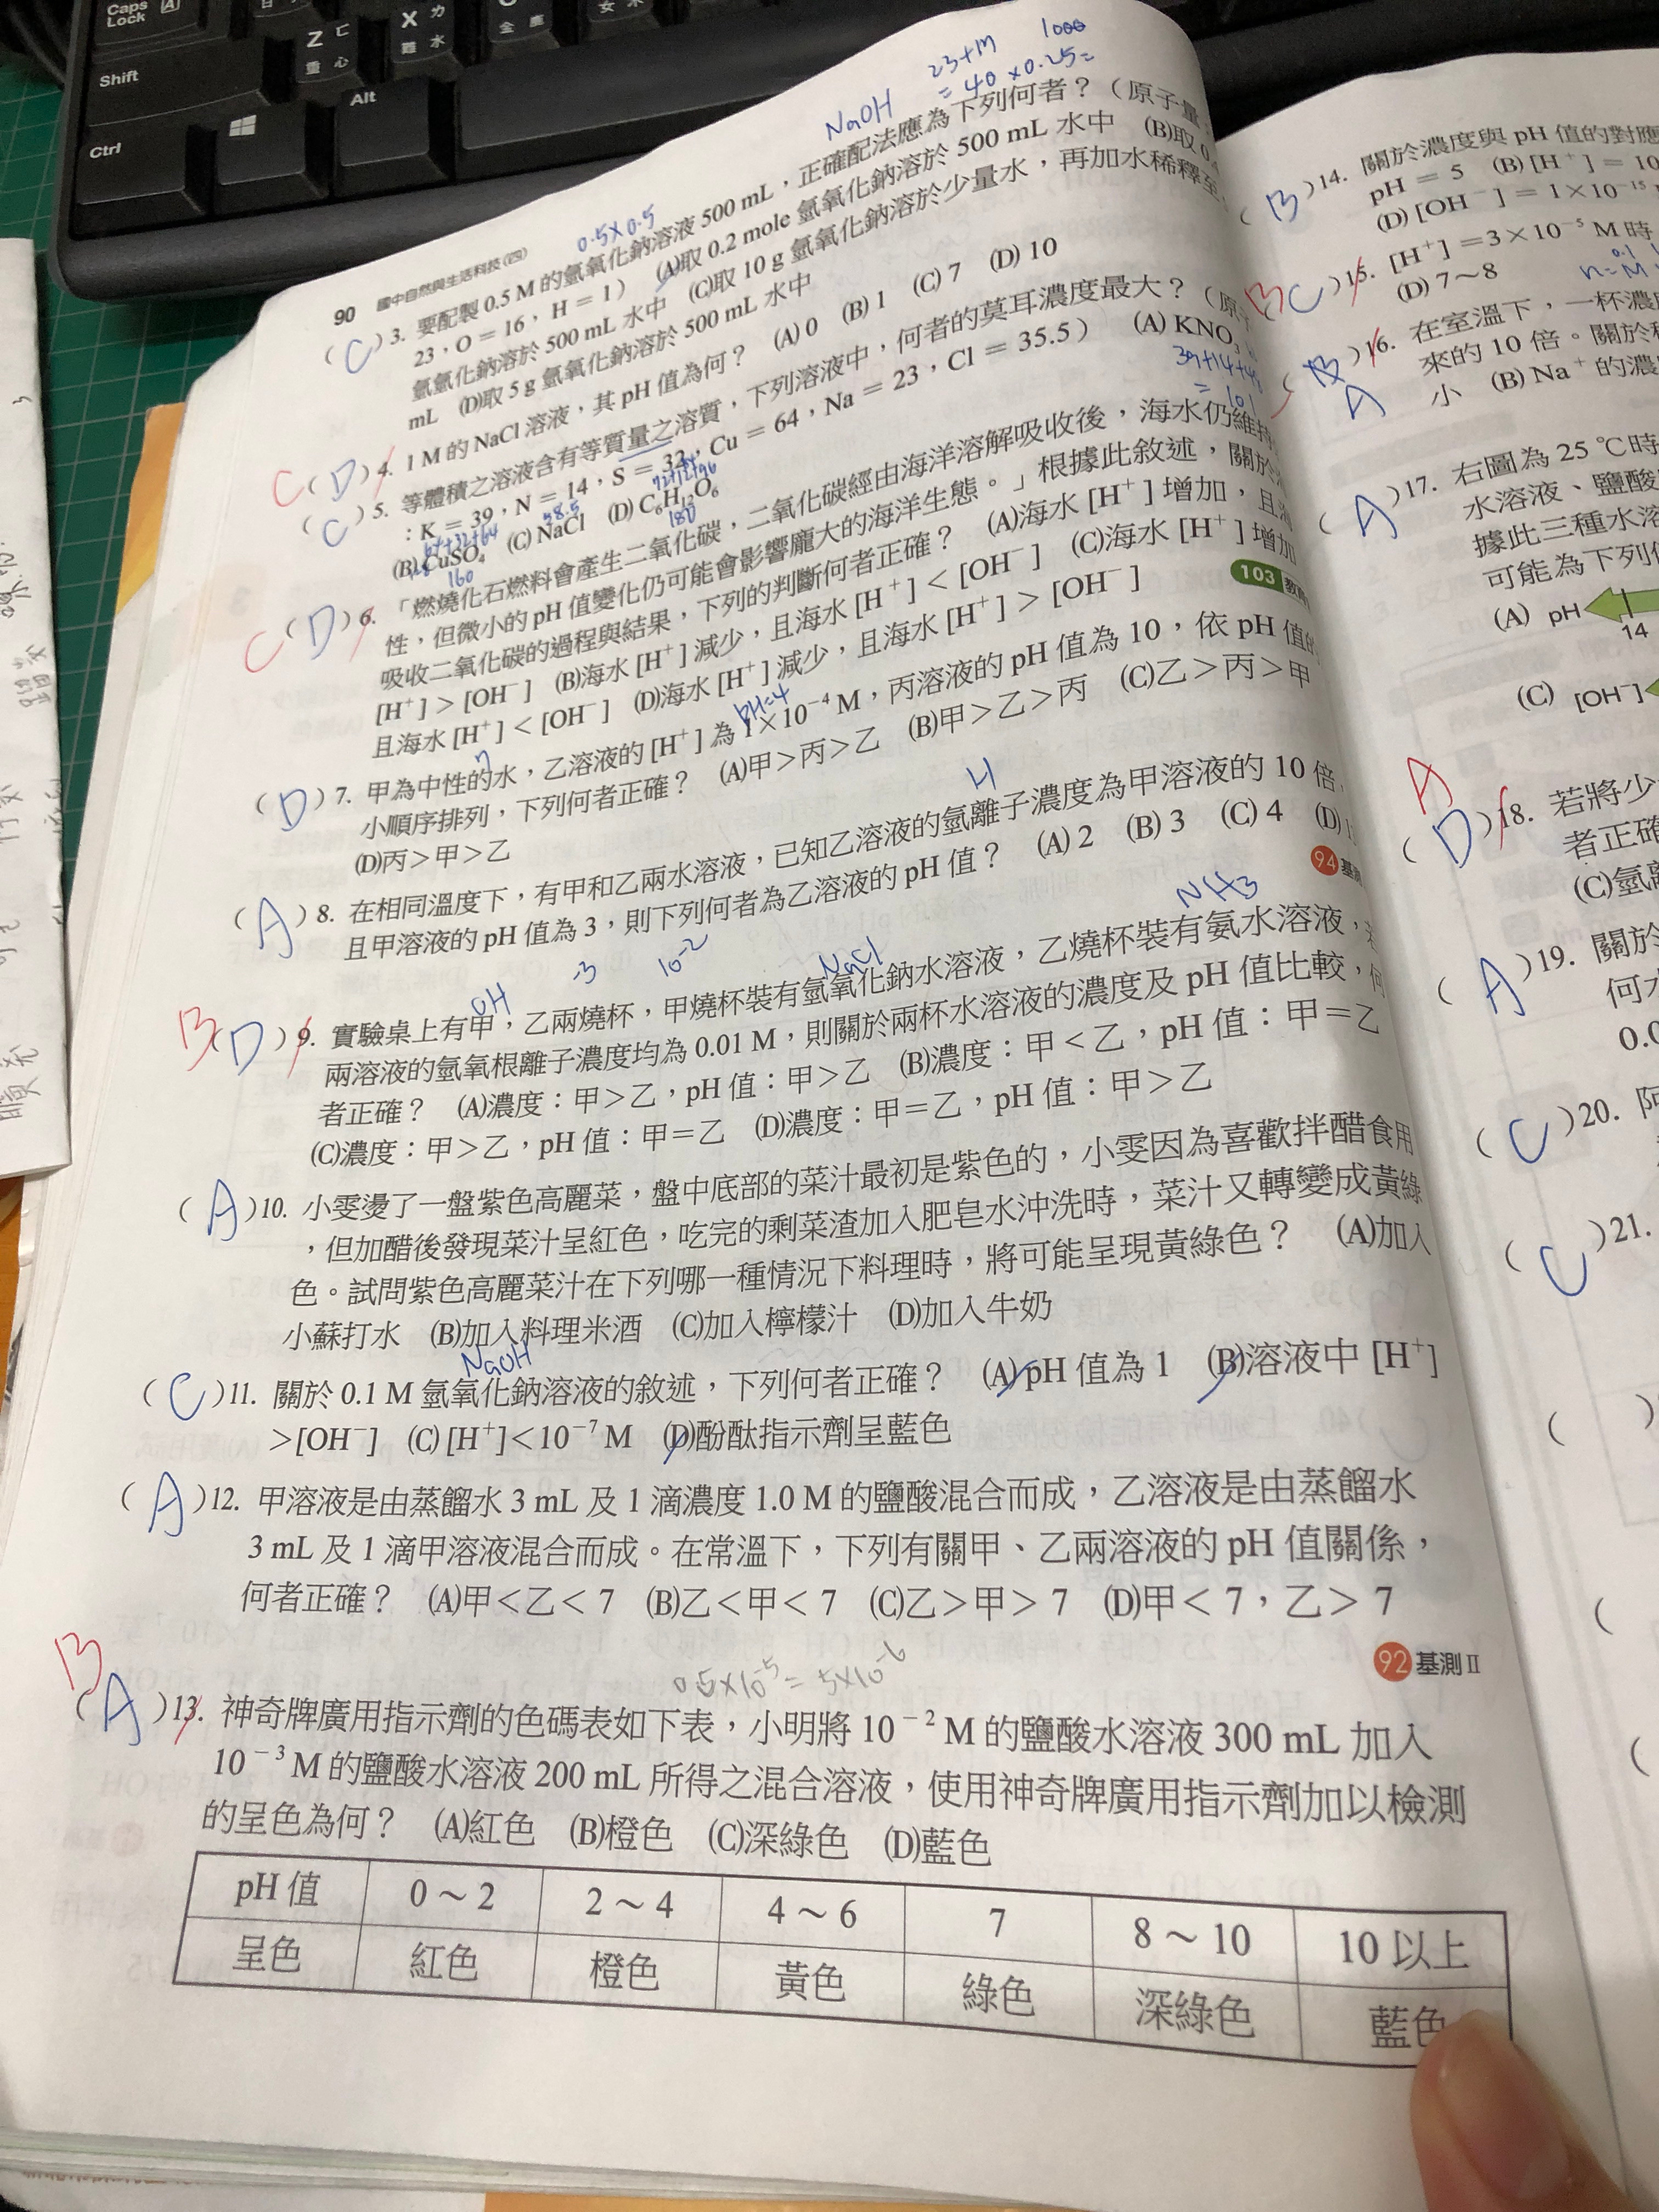 Caps Lock
A
Shift
Z ㄈ
重 心
X ㄌ
難 水
Alt
Ctrl
NaOH
1000
= 40 ×0.25=
0.5×0.5
90 國中自然與生活科技(四)
( C ) 3. 要配製 0.5 M 的氫氧化鈉溶液 500 mL，正確配法應為下列何者？（原子量
23，O = 16，H = 1） (A)取 0.2 mole 氫氧化鈉溶於 500 mL 水中 (B)取
氫氧化鈉溶於 500 mL 水中 (C)取 10 g 氫氧化鈉溶於少量水，再加水稀釋至
mL (D)取 5 g 氫氧化鈉溶於 500 mL 水中
C ( D ) 4. 1 M 的 NaCl 溶液，其 pH 值為何？ (A) 0 (B) 1 (C) 7 (D) 10
( C ) 5. 等體積之溶液含有等質量之溶質，下列溶液中，何者的莫耳濃度最大？（原
：K = 39，N = 14，S = 32，Cu = 64，Na = 23，Cl = 35.5） (A) KNO₃
(B) CuSO₄ (C) NaCl (D) C₆H₁₂O₆
160
58.5
180
= 101
C ( D ) 6. 「燃燒化石燃料會產生二氧化碳，二氧化碳經由海洋溶解吸收後，海水仍維持
性，但微小的 pH 值變化仍可能會影響龐大的海洋生態。」根據此敘述，關於
吸收二氧化碳的過程與結果，下列的判斷何者正確？ (A)海水 [H⁺] 增加，且
[H⁺] > [OH⁻] (B)海水 [H⁺] 減少，且海水 [H⁺] < [OH⁻] (C)海水 [H⁺] 增加
且海水 [H⁺] < [OH⁻] (D)海水 [H⁺] 減少，且海水 [H⁺] > [OH⁻]
103
7
pH=4
( D ) 7. 甲為中性的水，乙溶液的 [H⁺] 為 1×10⁻⁴ M，丙溶液的 pH 值為 10，依 pH 值
小順序排列，下列何者正確？ (A)甲＞丙＞乙 (B)甲＞乙＞丙 (C)乙＞丙＞甲
(D)丙＞甲＞乙
H
( A ) 8. 在相同溫度下，有甲和乙兩水溶液，已知乙溶液的氫離子濃度為甲溶液的 10 倍，
且甲溶液的 pH 值為 3，則下列何者為乙溶液的 pH 值？ (A) 2 (B) 3 (C) 4 (D)
94 基測
-3
10⁻²
OH
NaCl
NH₃
B ( D ) 9. 實驗桌上有甲，乙兩燒杯，甲燒杯裝有氫氧化鈉水溶液，乙燒杯裝有氨水溶液，若
兩溶液的氫氧根離子濃度均為 0.01 M，則關於兩杯水溶液的濃度及 pH 值比較，何
者正確？ (A)濃度：甲＞乙，pH 值：甲＞乙 (B)濃度：甲＜乙，pH 值：甲＝乙
(C)濃度：甲＞乙，pH 值：甲＝乙 (D)濃度：甲＝乙，pH 值：甲＞乙
( A )10. 小雯燙了一盤紫色高麗菜，盤中底部的菜汁最初是紫色的，小雯因為喜歡拌醋食用
，但加醋後發現菜汁呈紅色，吃完的剩菜渣加入肥皂水沖洗時，菜汁又轉變成黃綠
色。試問紫色高麗菜汁在下列哪一種情況下料理時，將可能呈現黃綠色？ (A)加入
小蘇打水 (B)加入料理米酒 (C)加入檸檬汁 (D)加入牛奶
NaOH
( C )11. 關於 0.1 M 氫氧化鈉溶液的敘述，下列何者正確？ (A) pH 值為 1 (B)溶液中 [H⁺]
>[OH⁻] (C) [H⁺]<10⁻⁷ M (D)酚酞指示劑呈藍色
( A )12. 甲溶液是由蒸餾水 3 mL 及 1 滴濃度 1.0 M 的鹽酸混合而成，乙溶液是由蒸餾水
3 mL 及 1 滴甲溶液混合而成。在常溫下，下列有關甲、乙兩溶液的 pH 值關係，
何者正確？ (A)甲＜乙＜7 (B)乙＜甲＜7 (C)乙＞甲＞7 (D)甲＜7，乙＞7
92 基測 II
0.5×10⁻⁵ = 5×10⁻⁶
B ( A )13. 神奇牌廣用指示劑的色碼表如下表，小明將 10⁻² M 的鹽酸水溶液 300 mL 加入
10⁻³ M 的鹽酸水溶液 200 mL 所得之混合溶液，使用神奇牌廣用指示劑加以檢測
的呈色為何？ (A)紅色 (B)橙色 (C)深綠色 (D)藍色
pH 值 0～2 2～4 4～6 7 8～10 10 以上
呈色 紅色 橙色 黃色 綠色 深綠色 藍色
( B )14. 關於濃度與 pH 值的對應
pH = 5 (B) [H⁺] = 10
(D) [OH⁻] = 1×10⁻¹⁵
B ( C )15. [H⁺] = 3×10⁻⁵ M 時
(D) 7～8
( B )16. 在室溫下，一杯濃
A
來的 10 倍。關於
小 (B) Na⁺ 的濃
( A )17. 右圖為 25 ℃時
水溶液、鹽酸
據此三種水溶
可能為下列
(A) pH
14
(C) [OH⁻]
A ( D )18. 若將少
者正確
(C)氫
( A )19. 關於
何
0.0
( C )20.
( C )21.